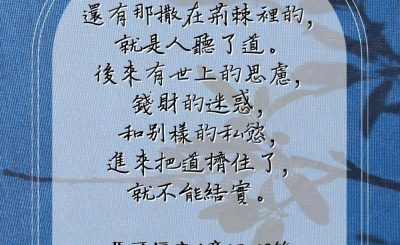 還有那撒在荊棘裡的，
就是人聽了道。
後來有世上的思慮，
錢財的迷惑，
和別樣的私慾，
進來把道擠住了，
就不能結實。